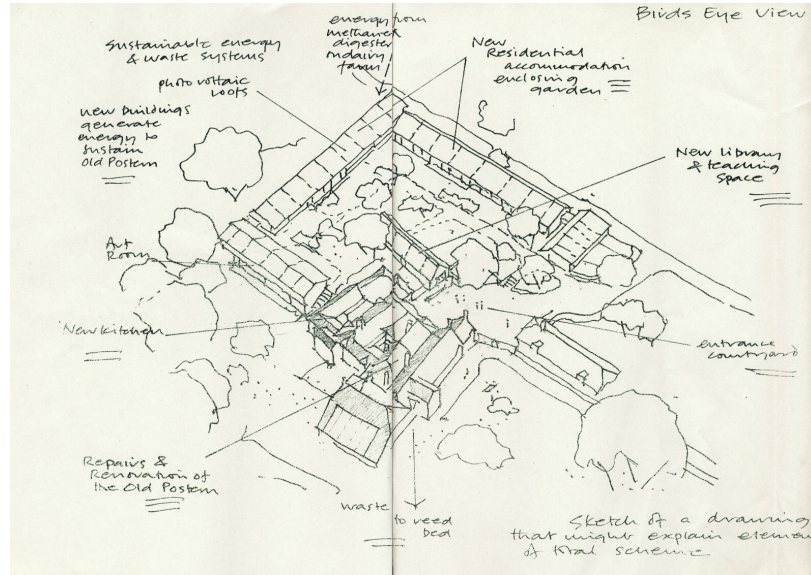 Birds Eye View
energy from
methane
digester
on dairy
farm
Sustainable energy
& waste systems
photovoltaic
roofs
new buildings
generate
energy to
sustain
Old Postern
New
Residential
accommodation
enclosing
garden
New library
& teaching
space
Art
Room
New kitchen
entrance
courtyard
Repairs &
Renovation of
the Old Postern
waste to reed
bed
Sketch of a drawing
that might explain elemen
of total scheme